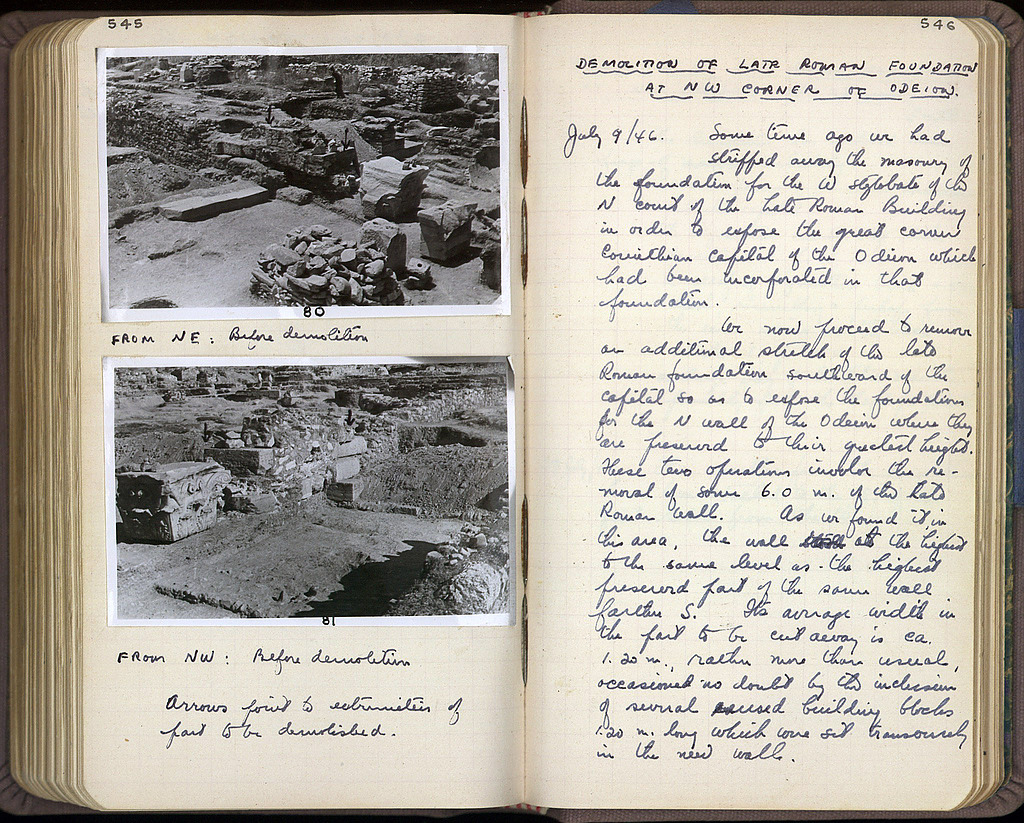 545
80
FROM NE: Before demolition
81
FROM NW: Before demolition
Arrows point to extremities of
part to be demolished.
546
DEMOLITION OF LATE ROMAN FOUNDATION
AT NW CORNER OF ODEION.
July 9/46. Some time ago we had
stripped away the masonry of
the foundation for the W stylobate of the
N court of the Late Roman Building
in order to expose the great corner
Corinthian capital of the Odeion which
had been incorporated in that
foundation.
We now proceed to remove
an additional stretch of the late
Roman foundation southward of the
capital so as to expose the foundations
for the N wall of the Odeion where they
are preserved to their greatest height.
These two operations involve the re-
moval of some 6.0 m. of the late
Roman wall. As we found it, in
this area, the wall at the highest
to the same level as the highest
preserved part of the same wall
farther S. Its average width in
the part to be cut away is ca.
1.20 m., rather more than usual,
occasioned no doubt by the inclusion
of several reused building blocks
1.20 m. long which were set transversely
in the new wall.